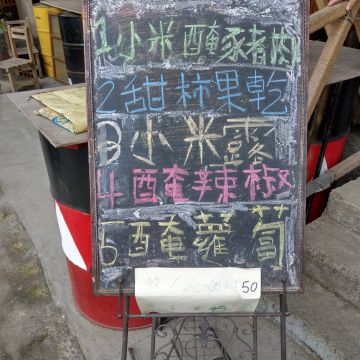 1小米醃豬肉
2甜柿果乾
3小米露
4醃辣椒
5醃蘿蔔
50